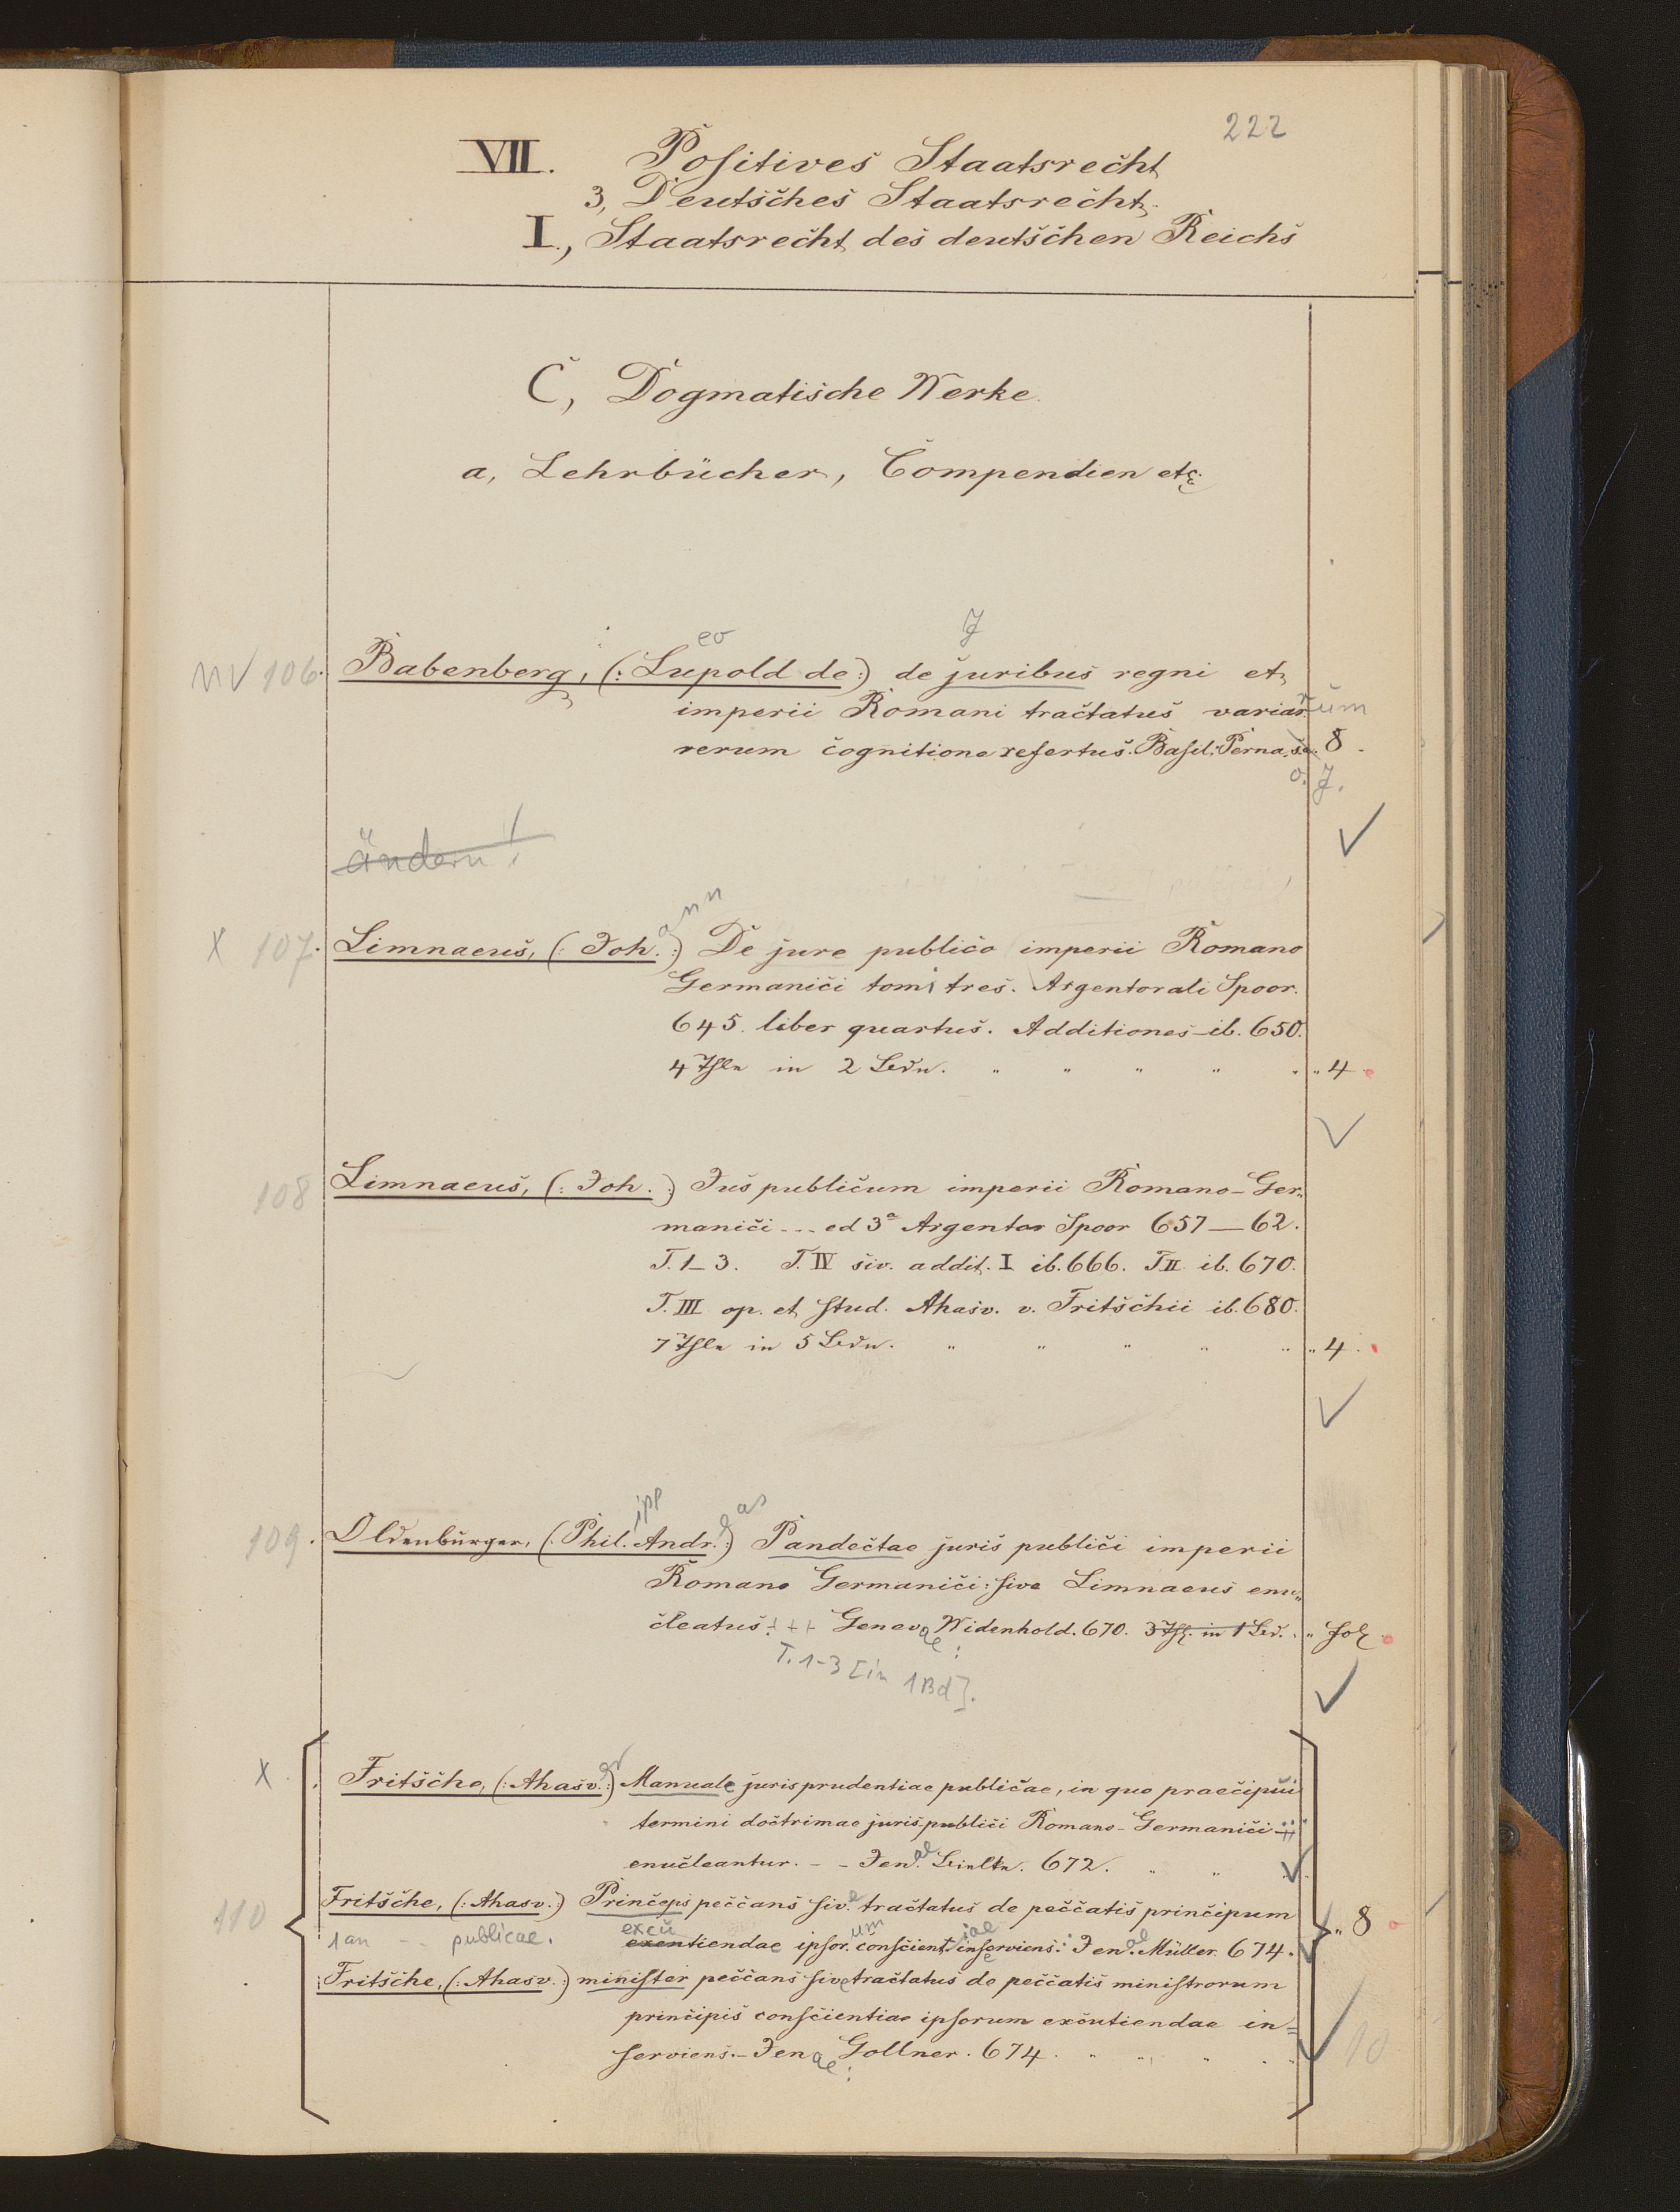 222
VII. Positives Staatsrecht
3, Deutsches Staatsrecht.
I., Staatsrecht des deutschen Reichs
C, Dogmatische Werke.
a, Lehrbücher, Compendien etc.
eo J
106. Babenberg, (: Lupold de :) de juribus regni et
imperii Romani tractatus variar. um
rerum cognitione refertus. Basil. Perna. s.a. 8.
o. J.
ändern!
ann
X 107. Limnaeus, (: Joh. :) De jure publico imperii Romano
Germanici tomi tres. Argentorati Spoor.
645. liber quartus. Additiones ib. 650.
4 Thle in 2 Bdn. " " " " " " 4
108 Limnaeus, (: Joh. :) Jus publicum imperii Romano-Ger„
manici --- ed 3a Argentor Spoor 657—62.
T. 1_3. T. IV siv. addit. I ib. 666. T II ib. 670.
T. III op. et stud. Ahasv. v. Fritschii ib. 680.
7 Thle in 5 Bdn. " " " " " " 4.
ipp eas
109. Oldenburger, (: Phil. Andr. :) Pandectae juris publici imperii
Romano Germanici: sive Limnaeus enu„
cleatus. +++ Genevae: Widenhold. 670. 3 Thl. in 1 Bd. " fol.
T. 1-3 [in 1 Bd].
X Fritsche, (: Ahasv. :) er Manuale jurisprudentiae publicae, in quo praecipui
termini doctrinae juris publici Romano-Germanici
enucleantur. - - Jen. ae 672. " "
110 Fritsche, (: Ahasv. :) Princeps peccans sive tractatus de peccatis principum
1 an -- publicae. excu um iae
exentiendae ipsor. conscient. inserviens: Jen. ae Müller. 674. " 8
Fritsche, (: Ahasv. :) minister peccans sive tractatus de peccatis ministrorum
principis conscientiae ipsorum excutiendae in=
serviens.- Jenae: Gollner. 674. " " " "
10